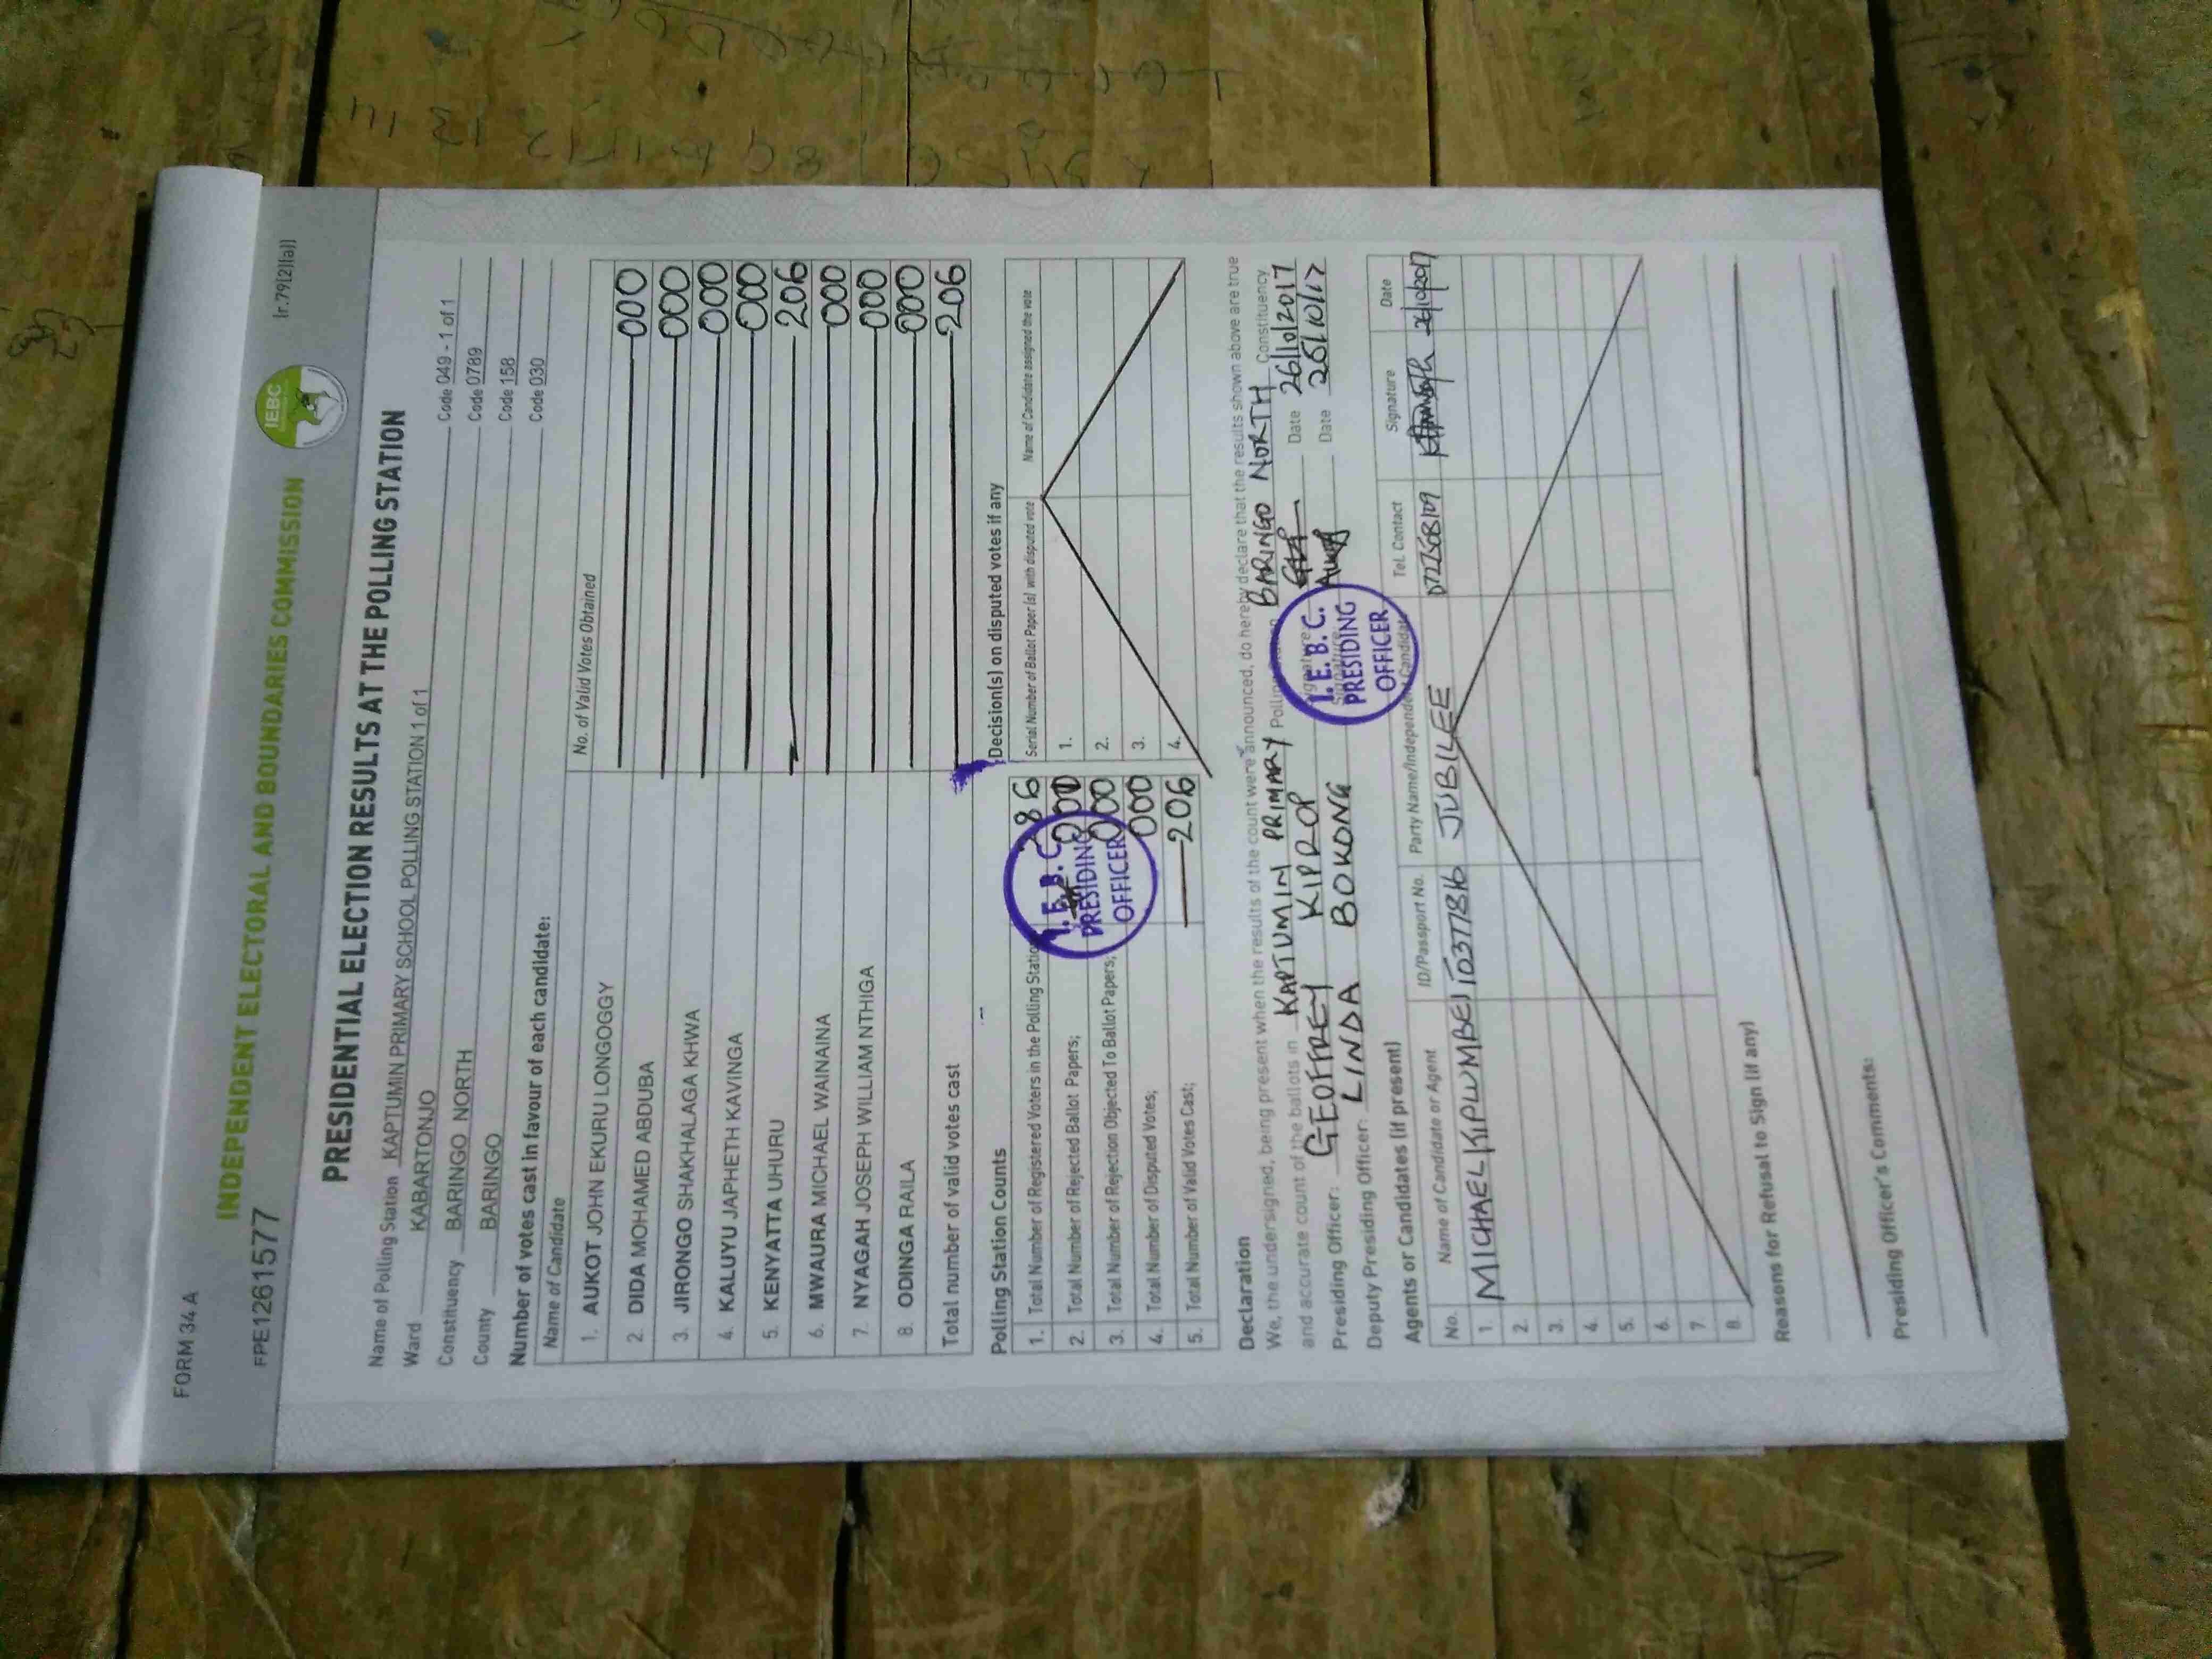 FORM 34 A
[r.79(2)(a)]
FPE1261577
INDEPENDENT ELECTORAL AND BOUNDARIES COMMISSION
IEBC
PRESIDENTIAL ELECTION RESULTS AT THE POLLING STATION
Name of Polling Station KAPTUMIN PRIMARY SCHOOL POLLING STATION 1 of 1 Code 049 - 1 of 1
Ward KABARTONJO Code 0789
Constituency BARINGO NORTH Code 158
County BARINGO Code 030
Number of votes cast in favour of each candidate:
Name of Candidate No. of Valid Votes Obtained
1. AUKOT JOHN EKURU LONGOGGY 000
2. DIDA MOHAMED ABDUBA 000
3. JIRONGO SHAKHALAGA KHWA 000
4. KALUYU JAPHETH KAVINGA 000
5. KENYATTA UHURU 206
6. MWAURA MICHAEL WAINAINA 000
7. NYAGAH JOSEPH WILLIAM NTHIGA 000
8. ODINGA RAILA 000
Total number of valid votes cast 206
Polling Station Counts
1. Total Number of Registered Voters in the Polling Station 86
2. Total Number of Rejected Ballot Papers; 000
3. Total Number of Rejection Objected To Ballot Papers; 000
4. Total Number of Disputed Votes; 000
5. Total Number of Valid Votes Cast; 206
I.E.B.C.
PRESIDING
OFFICER
Decision(s) on disputed votes if any
Serial Number of Ballot Paper (s) with disputed vote Name of Candidate assigned the vote
1.
2.
3.
4.
Declaration
We, the undersigned, being present when the results of the count were announced, do hereby declare that the results shown above are true
and accurate count of the ballots in KAPTUMIN PRIMARY Polling BARINGO NORTH Constituency
Presiding Officer: GEOFFREY KIPROP Signature Date 26/10/2017
Deputy Presiding Officer: LINDA BOKONG Signature Date 26/10/17
I.E.B.C.
PRESIDING
OFFICER
Agents or Candidates (if present)
No. Name of Candidate or Agent ID/Passport No. Party Name/Independent Candidate Tel. Contact Signature Date
1. MICHAEL KIPLUMBEI 10377816 JUBILEE 0722508109 26/10/2017
2.
3.
4.
5.
6.
7.
8.
Reasons for Refusal to Sign (if any)
Presiding Officer's Comments: